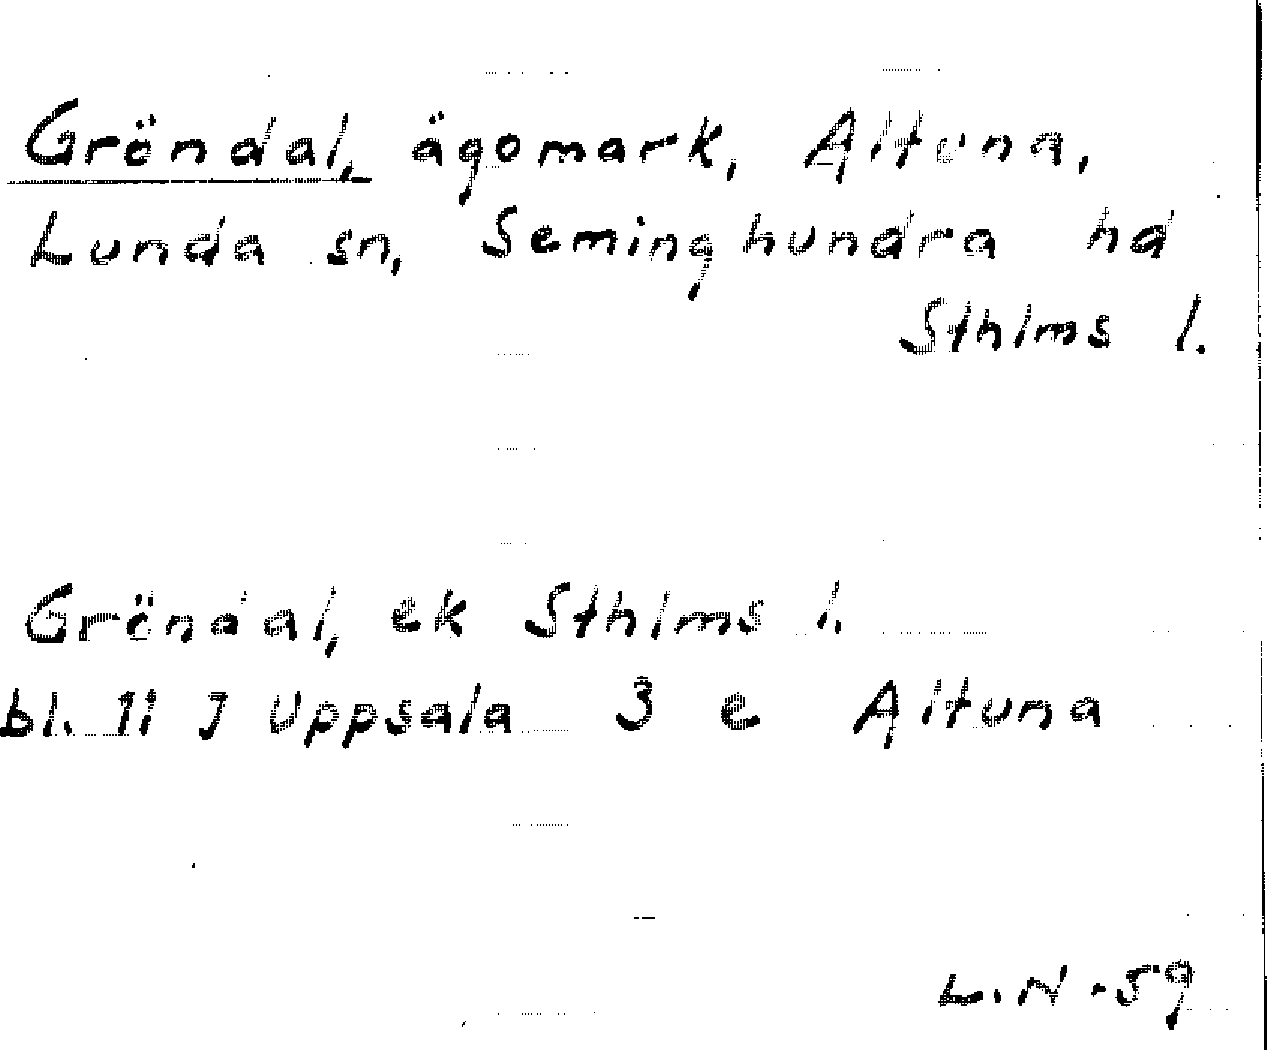 Gröndal, ägomark, Altuna,
Lunda sn, Seminghundra hd
Sthlms l.
Gröndal, ek Sthlms l.
bl. 11 J Uppsala 3 e Altuna
L.N -59